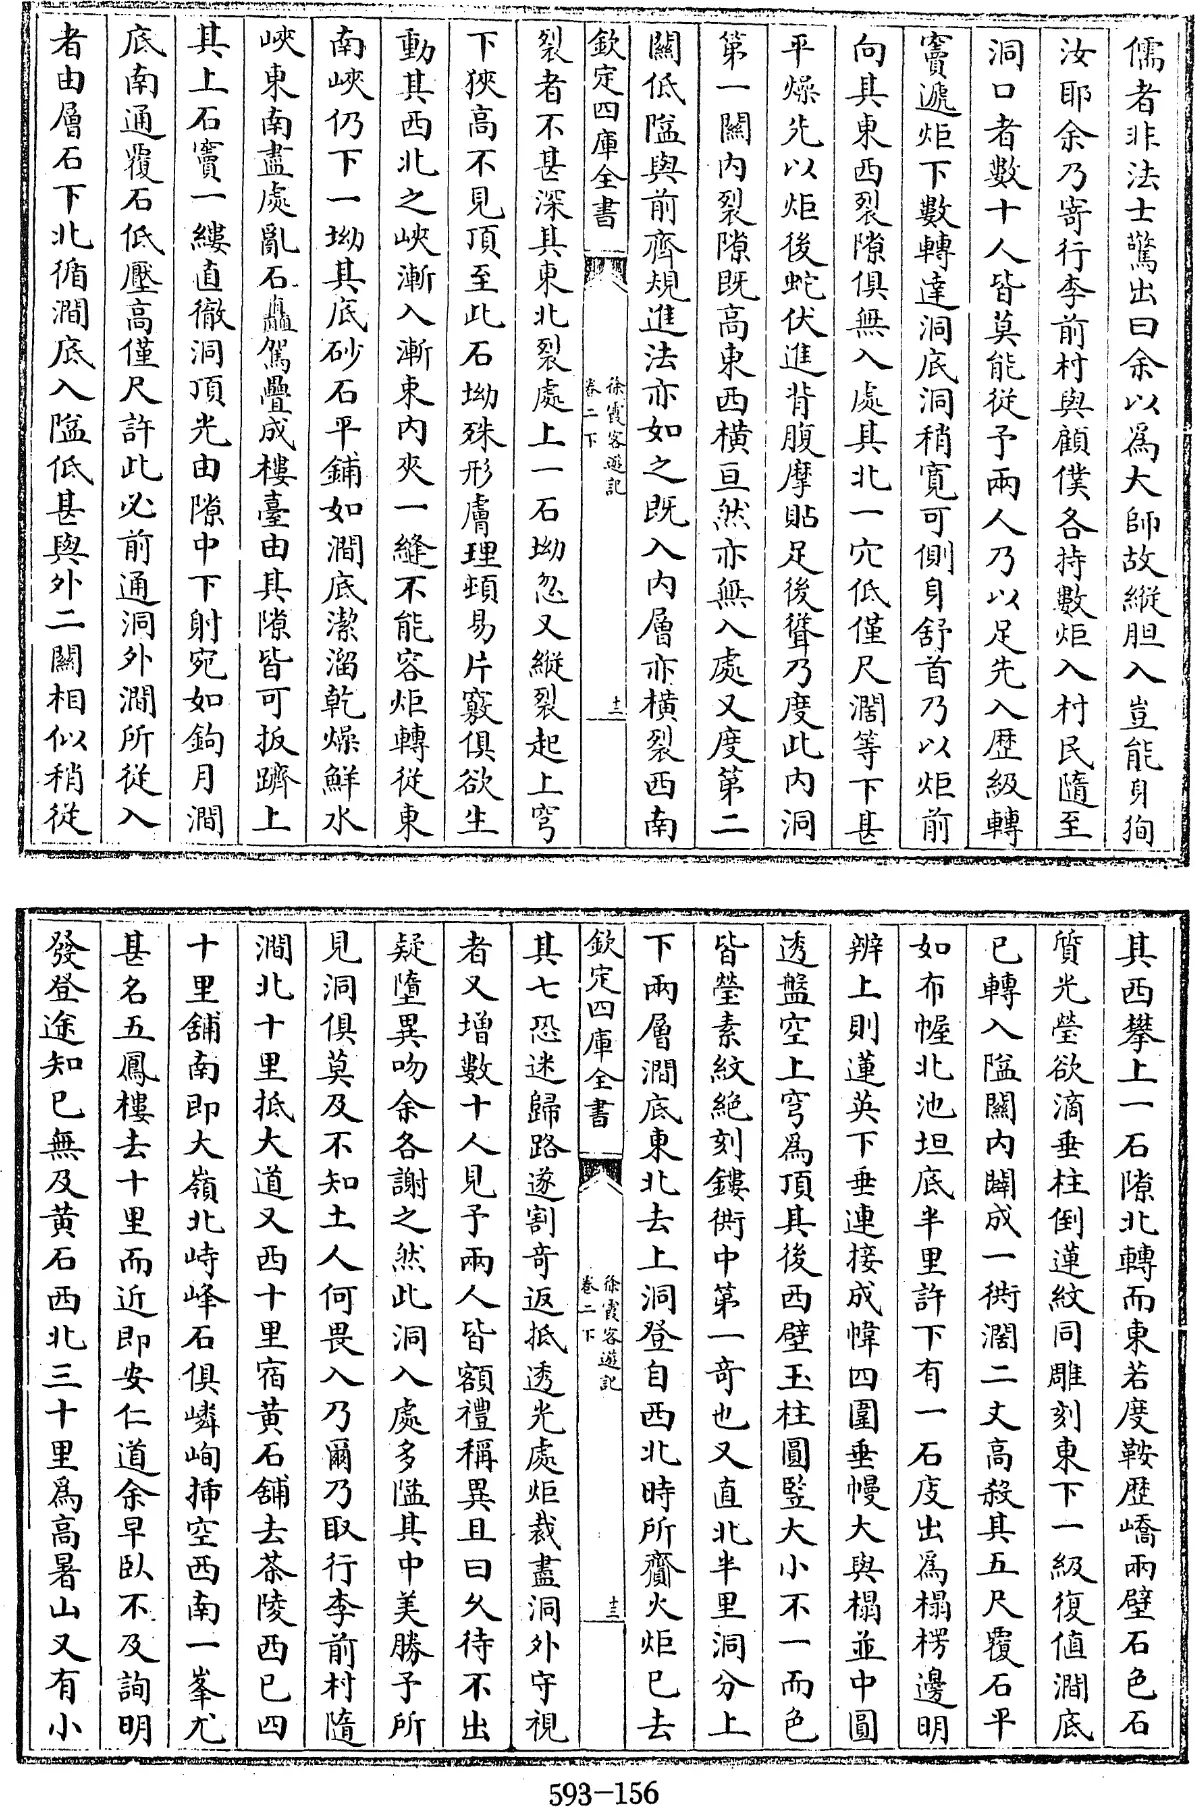 儒者非法士驚出曰余以為大師故縱胆入豈能身狥
汝耶余乃寄行李前村與顧僕各持數炬入村民隨至
洞口者數十人皆莫能從予兩人乃以足先入歴級轉
竇遞炬下數轉達洞底洞稍寛可側身舒首乃以炬前
向其東西裂隙俱無入處其北一穴低僅尺濶等下甚
平燥先以炬後蛇伏進背腹摩貼足後聳乃度此内洞
第一關内裂隙既高東西橫亘然亦無入處又度第二
關低隘與前齊規進法亦如之既入内層亦橫裂西南
欽定四庫全書
徐霞客遊記
卷二下
十二
裂者不甚深其東北裂處上一石坳忽又縱裂起上穹
下狹高不見頂至此石坳殊形膚理頓易片竅俱欲生
動其西北之峽漸入漸東内夾一縫不能容炬轉從東
南峽仍下一坳其底砂石平鋪如澗底潔溜乾燥鮮水
峽東南盡處亂石轟駕疊成樓臺由其隙皆可扳躋上
其上石竇一縷直徹洞頂光由隙中下射宛如鉤月澗
底南通覆石低壓高僅尺許此必前通洞外澗所從入
者由層石下北循澗底入隘低甚與外二關相似稍從
其西攀上一石隙北轉而東若度鞍歴嶠兩壁石色石
質光瑩欲滴垂柱倒蓮紋同雕刻東下一級復值澗底
已轉入隘關内闢成一衖濶二丈高殺其五尺覆石平
如布幄北池坦底半里許下有一石庋出為榻楞邊明
辨上則蓮英下垂連接成幃四圍垂幔大與榻並中圓
透盤空上穹為頂其後西壁玉柱圓竪大小不一而色
皆瑩素紋絶刻鏤衖中第一竒也又直北半里洞分上
下兩層澗底東北去上洞登自西北時所齎火炬已去
欽定四庫全書
徐霞客遊記
卷二下
十三
其七恐迷歸路遂割竒返抵透光處炬裁盡洞外守視
者又增數十人見予兩人皆額禮稱異且曰久待不出
疑墮異吻余各謝之然此洞入處多隘其中美勝予所
見洞俱莫及不知土人何畏入乃爾乃取行李前村隨
澗北十里抵大道又西十里宿黄石鋪去茶陵西已四
十里舖南即大嶺北峙峰石俱嶙峋挿空西南一峯尤
甚名五鳳樓去十里而近即安仁道余早臥不及詢明
發登途知已無及黄石西北三十里為高暑山又有小
593-156